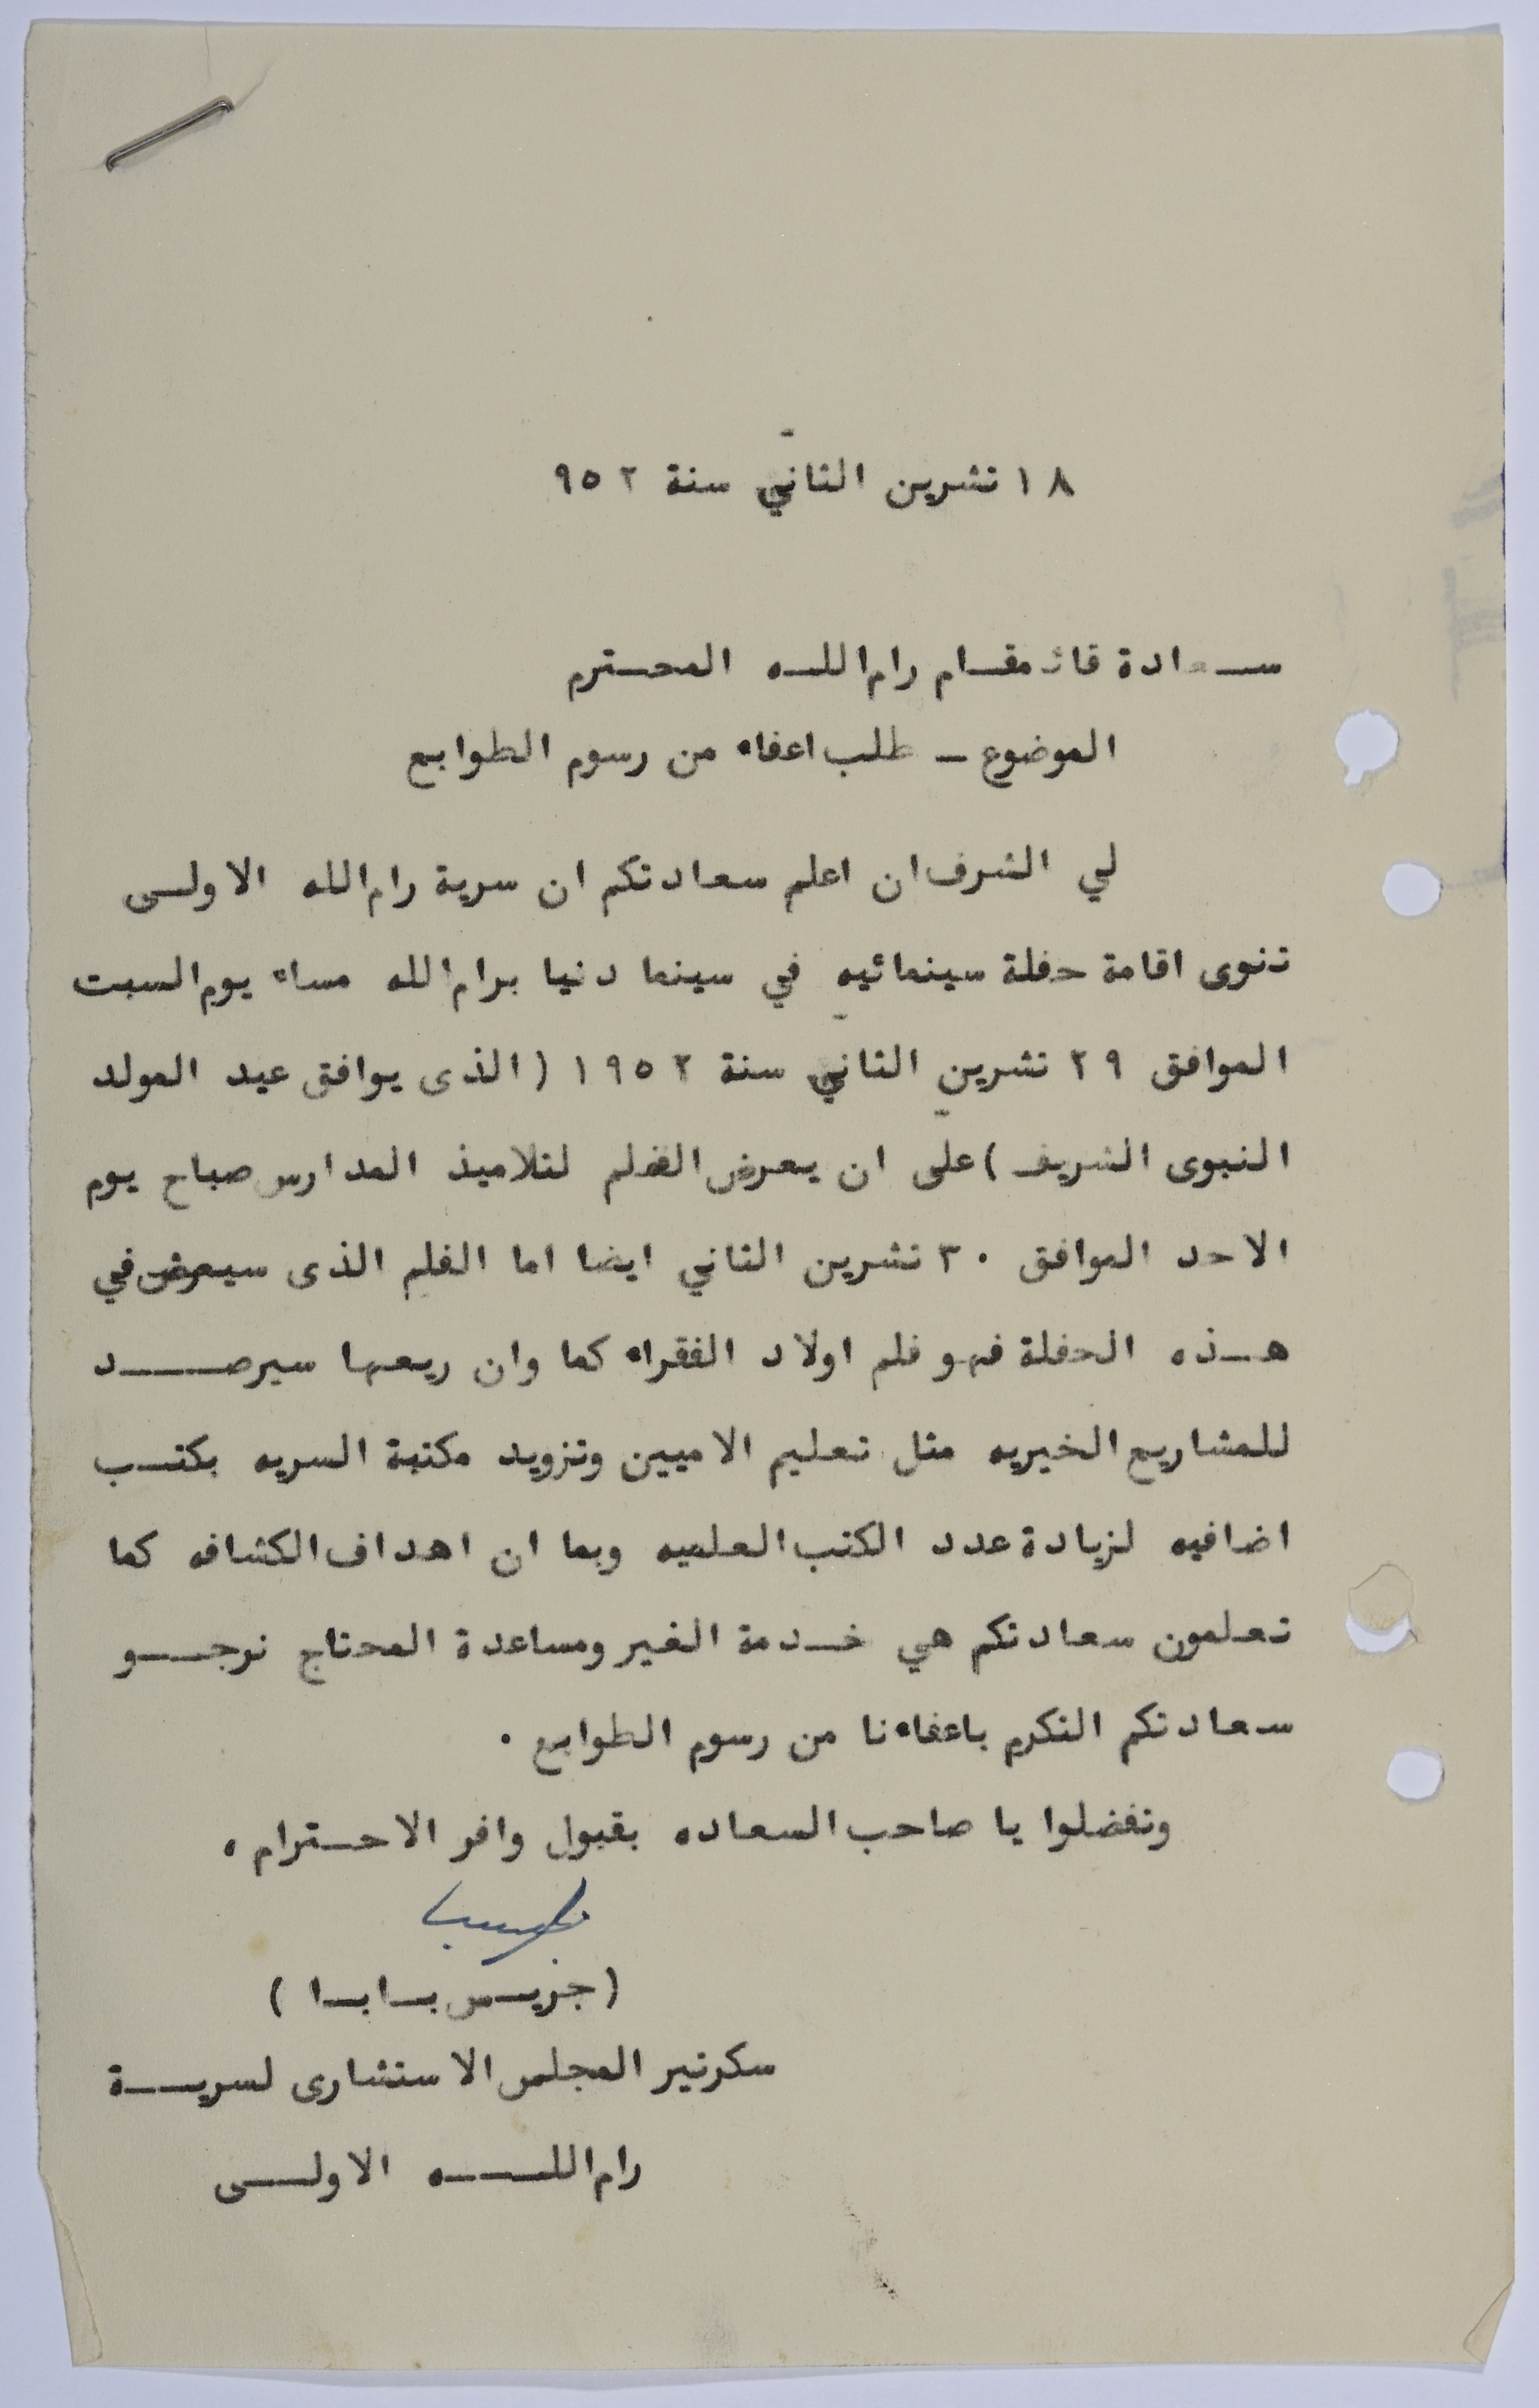 ١٨ تشرين الثاني سنة ٩٥٢
سعادة قائمقام رام الله المحترم
الموضوع - طلب اعفاء من رسوم الطوابع
لي الشرف ان اعلم سعادتكم ان سرية رام الله الاولى
تنوى اقامة حفلة سينمائيه في سينما دنيا برام الله مساء يوم السبت
الموافق ٢٩ تشرين الثاني سنة ١٩٥٢ (الذى يوافق عيد المولد
النبوى الشريف) على ان يعرض الفلم لتلاميذ المدارس صباح يوم
الاحد الموافق ٣٠ تشرين الثاني ايضا اما الفلم الذى سيعرض في
هذه الحفلة فهو فلم اولاد الفقراء كما وان ريعها سيرصد
للمشاريع الخيريه مثل تعليم الاميين وتزويد مكتبة السريه بكتب
اضافيه لزيادة عدد الكتب العلميه وبما ان اهداف الكشافه كما
تعلمون سعادتكم هي خدمة الغير ومساعدة المحتاج نرجو
سعادتكم التكرم باعفاءنا من رسوم الطوابع .
وتفضلوا يا صاحب السعاده بقبول وافر الاحترام ،
(جريس بابا)
سكرتير المجلس الاستشارى لسرية
رام الله الاولى